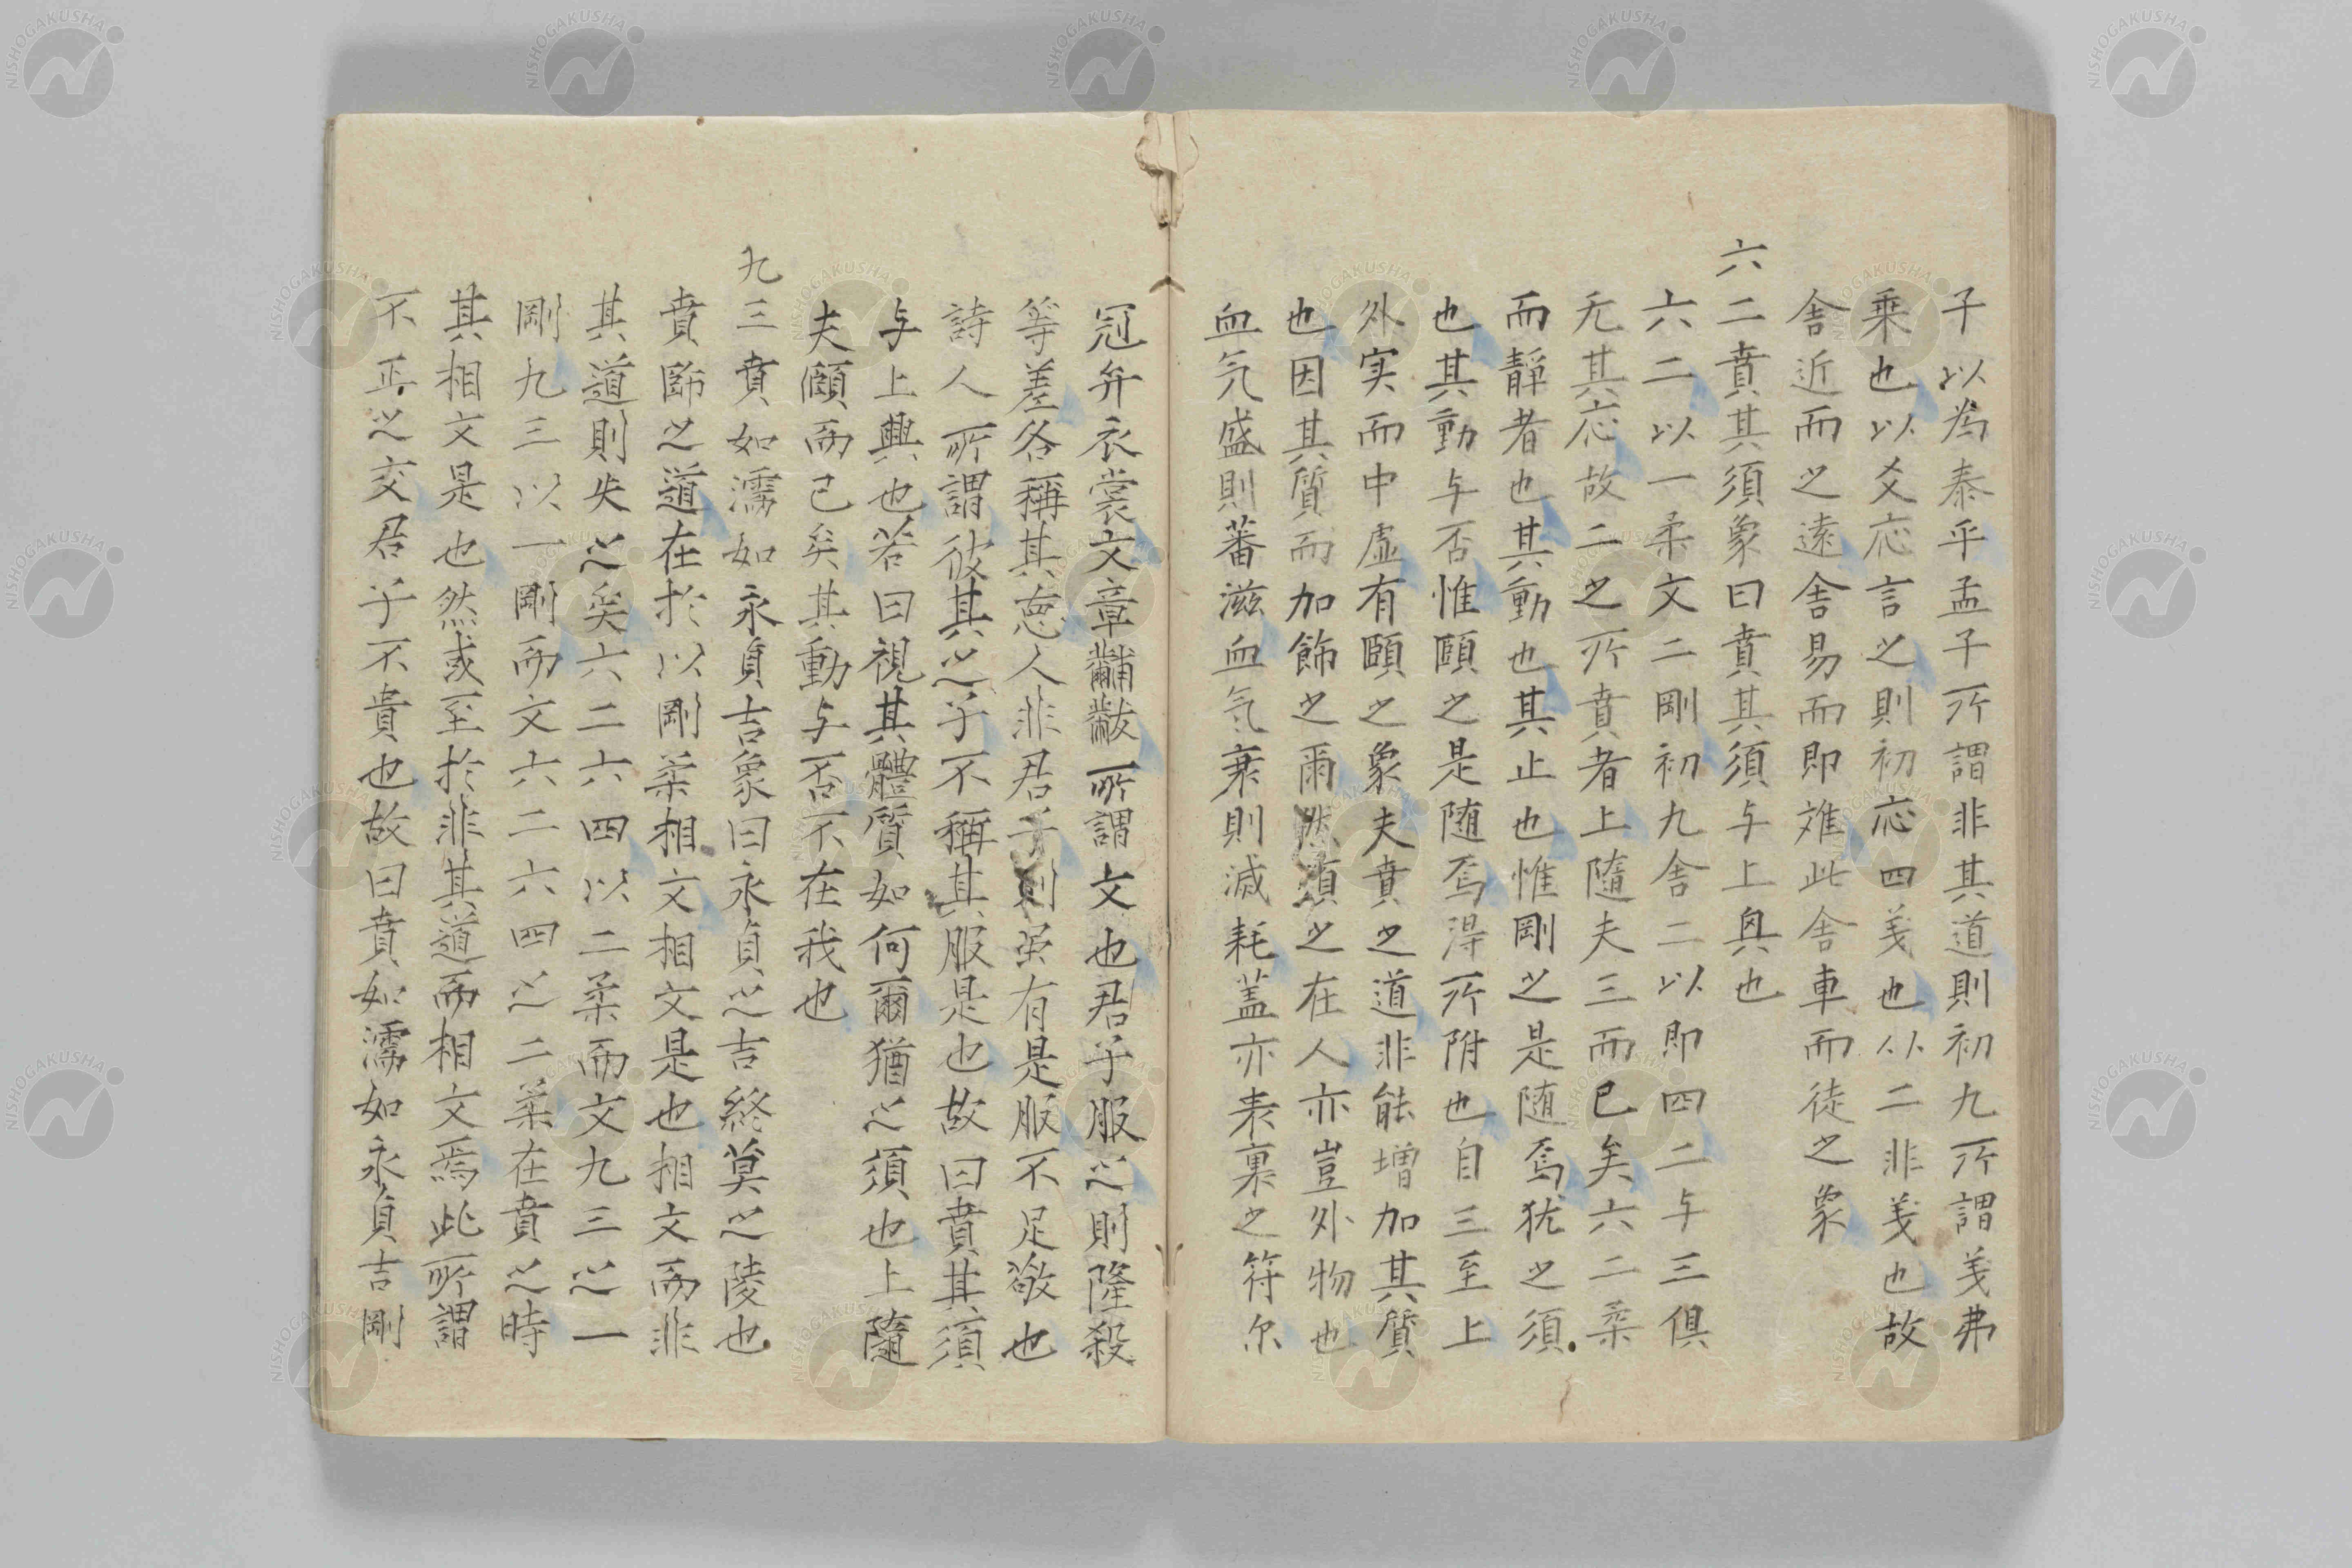 子以為泰乎孟子所謂非其道則初九所謂義弗
乗也以爻応言之則初応四義也以二非義也故
舎近而之遠舎易而即难此舎車而徒之象
六二賁其須象曰賁其須与上興也
六二以一柔文二剛初九舎二以即四二与三俱
无其応故二之所賁者上隨夫三而已矣六二柔
而靜者也其動也其止也惟剛之是随焉犹之須
也其動与否惟頤之是随焉得所附也自三至上
外実而中虚有頤之象夫賁之道非能増加其質
也因其質而加飾之爾然須之在人亦豈外物也
血气盛則蕃滋血气衰則滅耗盖亦表裏之符尔
冠弁衣裳文章黼黻所謂文也君子服之則隆殺
等差各稱其悳人非君子則虽有是服不足敬也
詩人所謂彼其之子不稱其服是也故曰賁其須
与上興也若曰視其體質如何爾猶之須也上隨
夫頤而已矣其動与否不在我也
九三賁如濡如永貞吉象曰永貞之吉終莫之陵也
賁飾之道在於以剛柔相文相文是也相文而非
其道則失之矣六二六四以二柔而文九三之一
剛九三以一剛而文六二六四之二柔在賁之時
其相文是也然或至於非其道而相文焉此所謂
不正之交君子不貴也故曰賁如濡如永貞吉剛
NISHOGAKUSHA